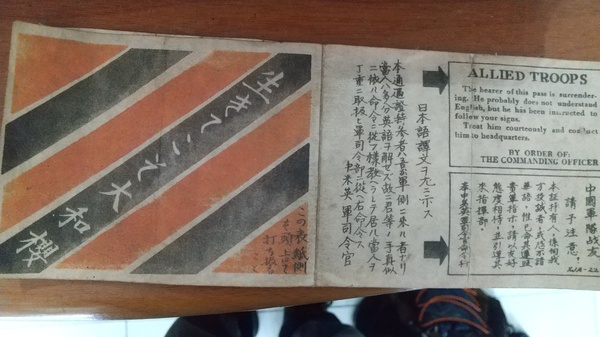 生きてこそ大和櫻
この表紙側
を頭上に
打ち振る
こと
日本語譯文ヲ左ニ示ス
本通過證持參者ハ吾ガ軍側ニ來ル者ナリ
當人ハ多分英語ヲ解セズ故ニ君等ノ手真似
ニ依ル命令ニ從フ樣教ヘラレテ居ル當人ヲ
丁重ニ取扱ヒ軍司令部ニ從ヘ右命令ス
中米英軍司令官
ALLIED TROOPS
The bearer of this pass is surrender-
ing. He probably does not understand
English, but he has been instructed to
follow your signs.
Treat him courteously and conduct
him to headquarters.
BY ORDER OF:
THE COMMANDING OFFICER
中國軍隊战友
請予注意,
本証持有人,係向我
方投誠者,或恐不諳
華語,惟已令其遵從
貴軍指示,請以友好
態度相待,並引導其
來指揮部.